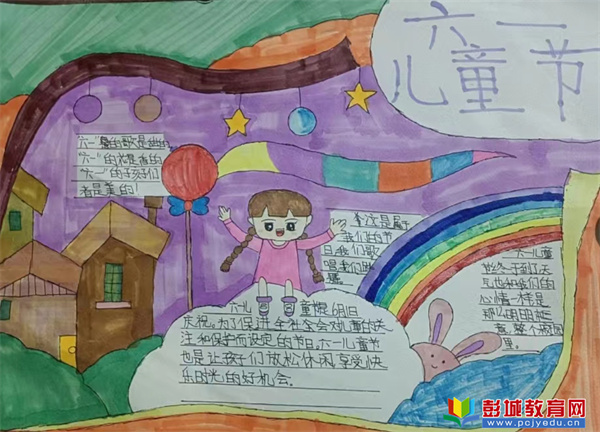 六一
儿童节
六一"里的歌是甜的
"六一"的花是香的
"六一"的孩子们
者是美的!
这是属于
我们的节
日我们歌
唱我们跳
六一儿童
节终于到了天
气也和我们的
心情一样是
那么明明媚
里。
六一儿童节是6月1日
庆祝。为了保进全社会对儿童的关
注和保护而设定的节日。六一儿童节
也是让孩子们放松休闲,享受快
乐时光的好机会。
彭城教育网
www.pcjyedu.cn